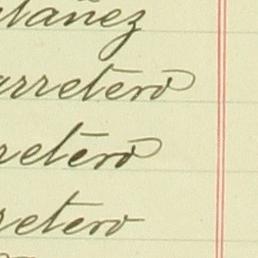 tañez
arretero
retero
retero